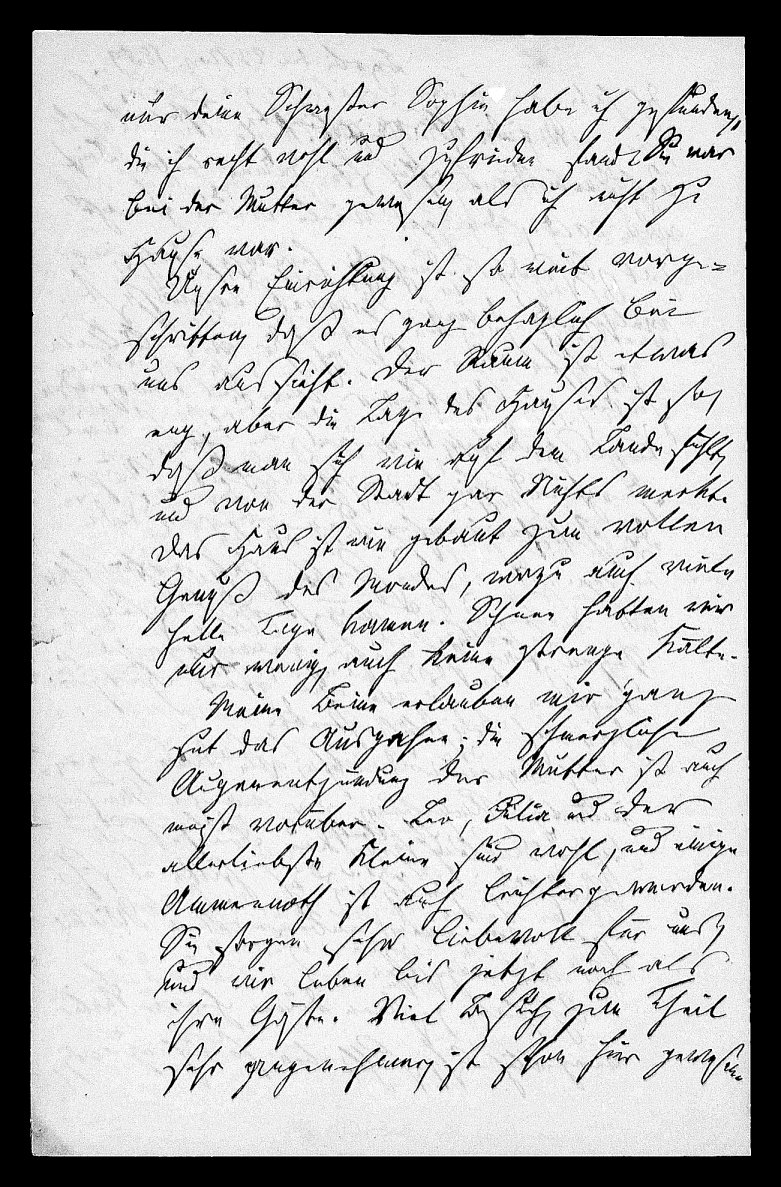 nur deine Schwester Sophie habe ich gefunden,
die ich recht wohl und zufrieden fand. Sie war
bei der Mutter gewesen, als ich nicht zu
Hause war.
Unsere Einrichtung ist so weit vorge-
schritten, daß es ganz behaglich bei
uns aussieht. Der Raum ist etwas
eng, aber die Lage des Hauses ist so,
daß man sich wie auf dem Lande fühlt,
und von der Stadt gar Nichts merkt.
Das Haus ist wie gebaut zum vollen
Genuß des Mondes, wozu auch viele
helle Tage kamen. Schnee hatten wir
nur wenig, auch keine strenge Kälte.
Meine Beine erlauben mir ganz
gut das Ausgehen; die schmerzliche
Augenentzündung der Mutter ist auch
meist vorüber. Leo, Julia und der
allerliebste Kleine sind wohl, und einige
Ammennoth ist auch leichter geworden.
Sie sorgen sehr liebevoll für uns,
und wir leben bis jetzt noch als
ihre Gäste. Viel Besuch, zum Theil
sehr angenehmer, ist schon hier gewesen